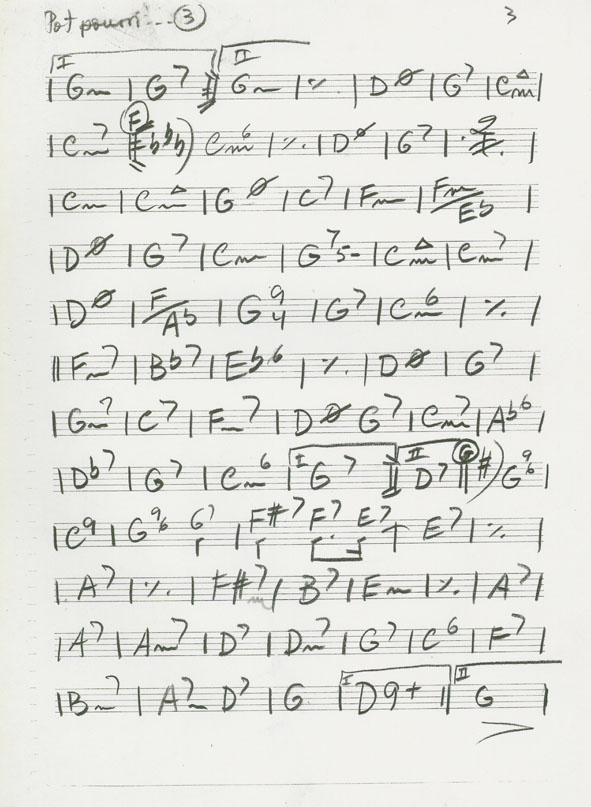 Pot pourri... 3 3
I | Gm | G7 || II Gm | ٪ | DØ | G7 | CmΔ |
| Cm7 || F bbb) Cm6 | ٪ | DØ | G7 |
| Cm | CmΔ | GØ | C7 | Fm | Fm/Eb |
| DØ | G7 | Cm | G7 5- | CmΔ | Cm7 |
| DØ | F/Ab | G9 4 | G7 | Cm6 | ٪ |
|| Fm7 | Bb7 | Eb6 | ٪ | DØ | G7 |
| Gm7 | C7 | Fm7 | DØ G7 | Cm7 | Ab6 |
| Db7 | G7 | Cm6 | I G7 || II D7 || G #) G9 6 |
| C9 | G9 6 G7 | F#7 F7 E7 | E7 | ٪ |
| A7 | ٪ | F#m7 | B7 | Em | ٪ | A7 |
| A7 | Am7 | D7 | Dm7 | G7 | C6 | F7 |
| Bm7 | Am7 D7 | G | I D9+ || II G |